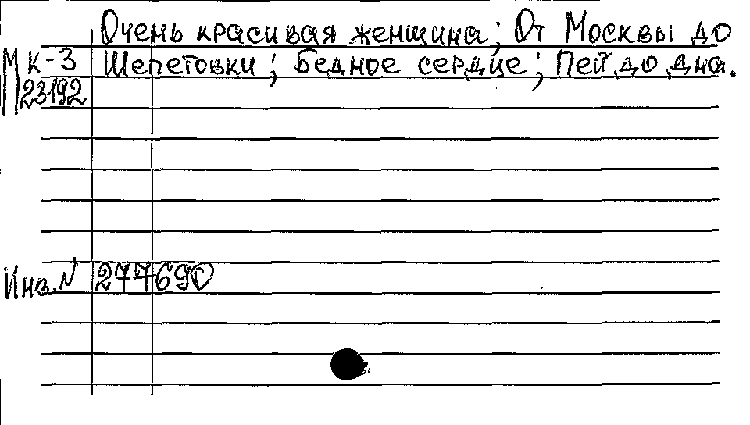 Очень красивая женщина; От Москвы до
МК-3 Шепетовки; Бедное сердце; Пей до дна.
23192
Инв.N 277690